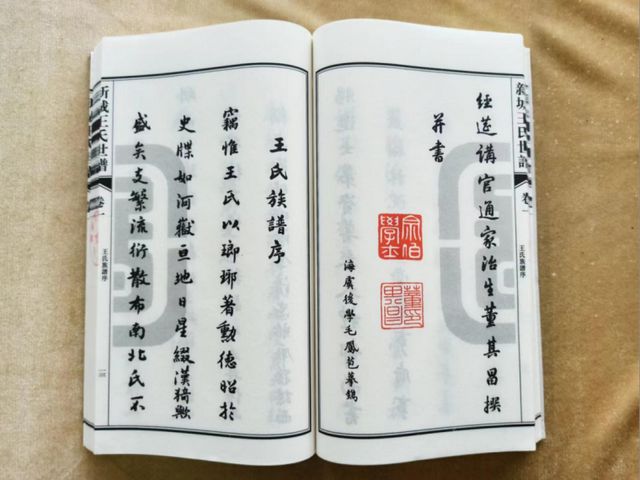 新城王氏世譜
卷一
王氏族譜序
經筵講官通家治生董其昌撰
并書
宗伯學士
海虞後學毛鳳苞摹鐫
王氏族譜序
竊惟王氏以瑯琊著勳德昭於
史牒如河嶽亘地日星綴漢猗歟
盛矣支繁流衍散布南北氏不
新城王氏世譜
卷一
王氏族譜序